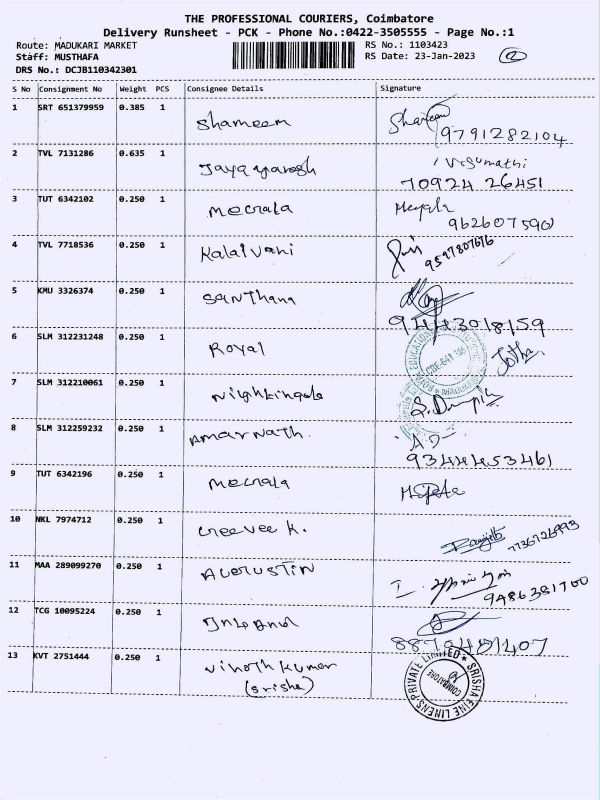 THE PROFESSIONAL COURIERS, Coimbatore
Delivery Runsheet - PCK - Phone No.:0422-3505555 - Page No.:1
Route: MADUKARI MARKET RS No.: 1103423
Staff: MUSTHAFA RS Date: 23-Jan-2023 2
DRS No.: DCJB110342301
S No Consignment No Weight PCS Consignee Details Signature
1 SRT 651379959 0.385 1 Shameem
9791282104
2 TVL 7131286 0.635 1
70924 26451
3 TUT 6342102 0.250 1 Mecrala
9626075901
4 TVL 7718536 0.250 1 Kalaivani
9597807676
5 KMU 3326374 0.250 1 Santhana
9443018159
6 SLM 312231248 0.250 1 Royal
7 SLM 312210061 0.250 1 Nightingale
8 SLM 312259232 0.250 1 Amarnath.
9344453461
9 TUT 6342196 0.250 1 Mecrala
10 NKL 7974712 0.250 1
7736726993
11 MAA 289099270 0.250 1 Augustin
9486381700
12 TCG 10095224 0.250 1
13 KVT 2751444 0.250 1 Vinothkumar
(Srisha)
SRISHA FINE LINENS PRIVATE LIMITED
COIMBATORE